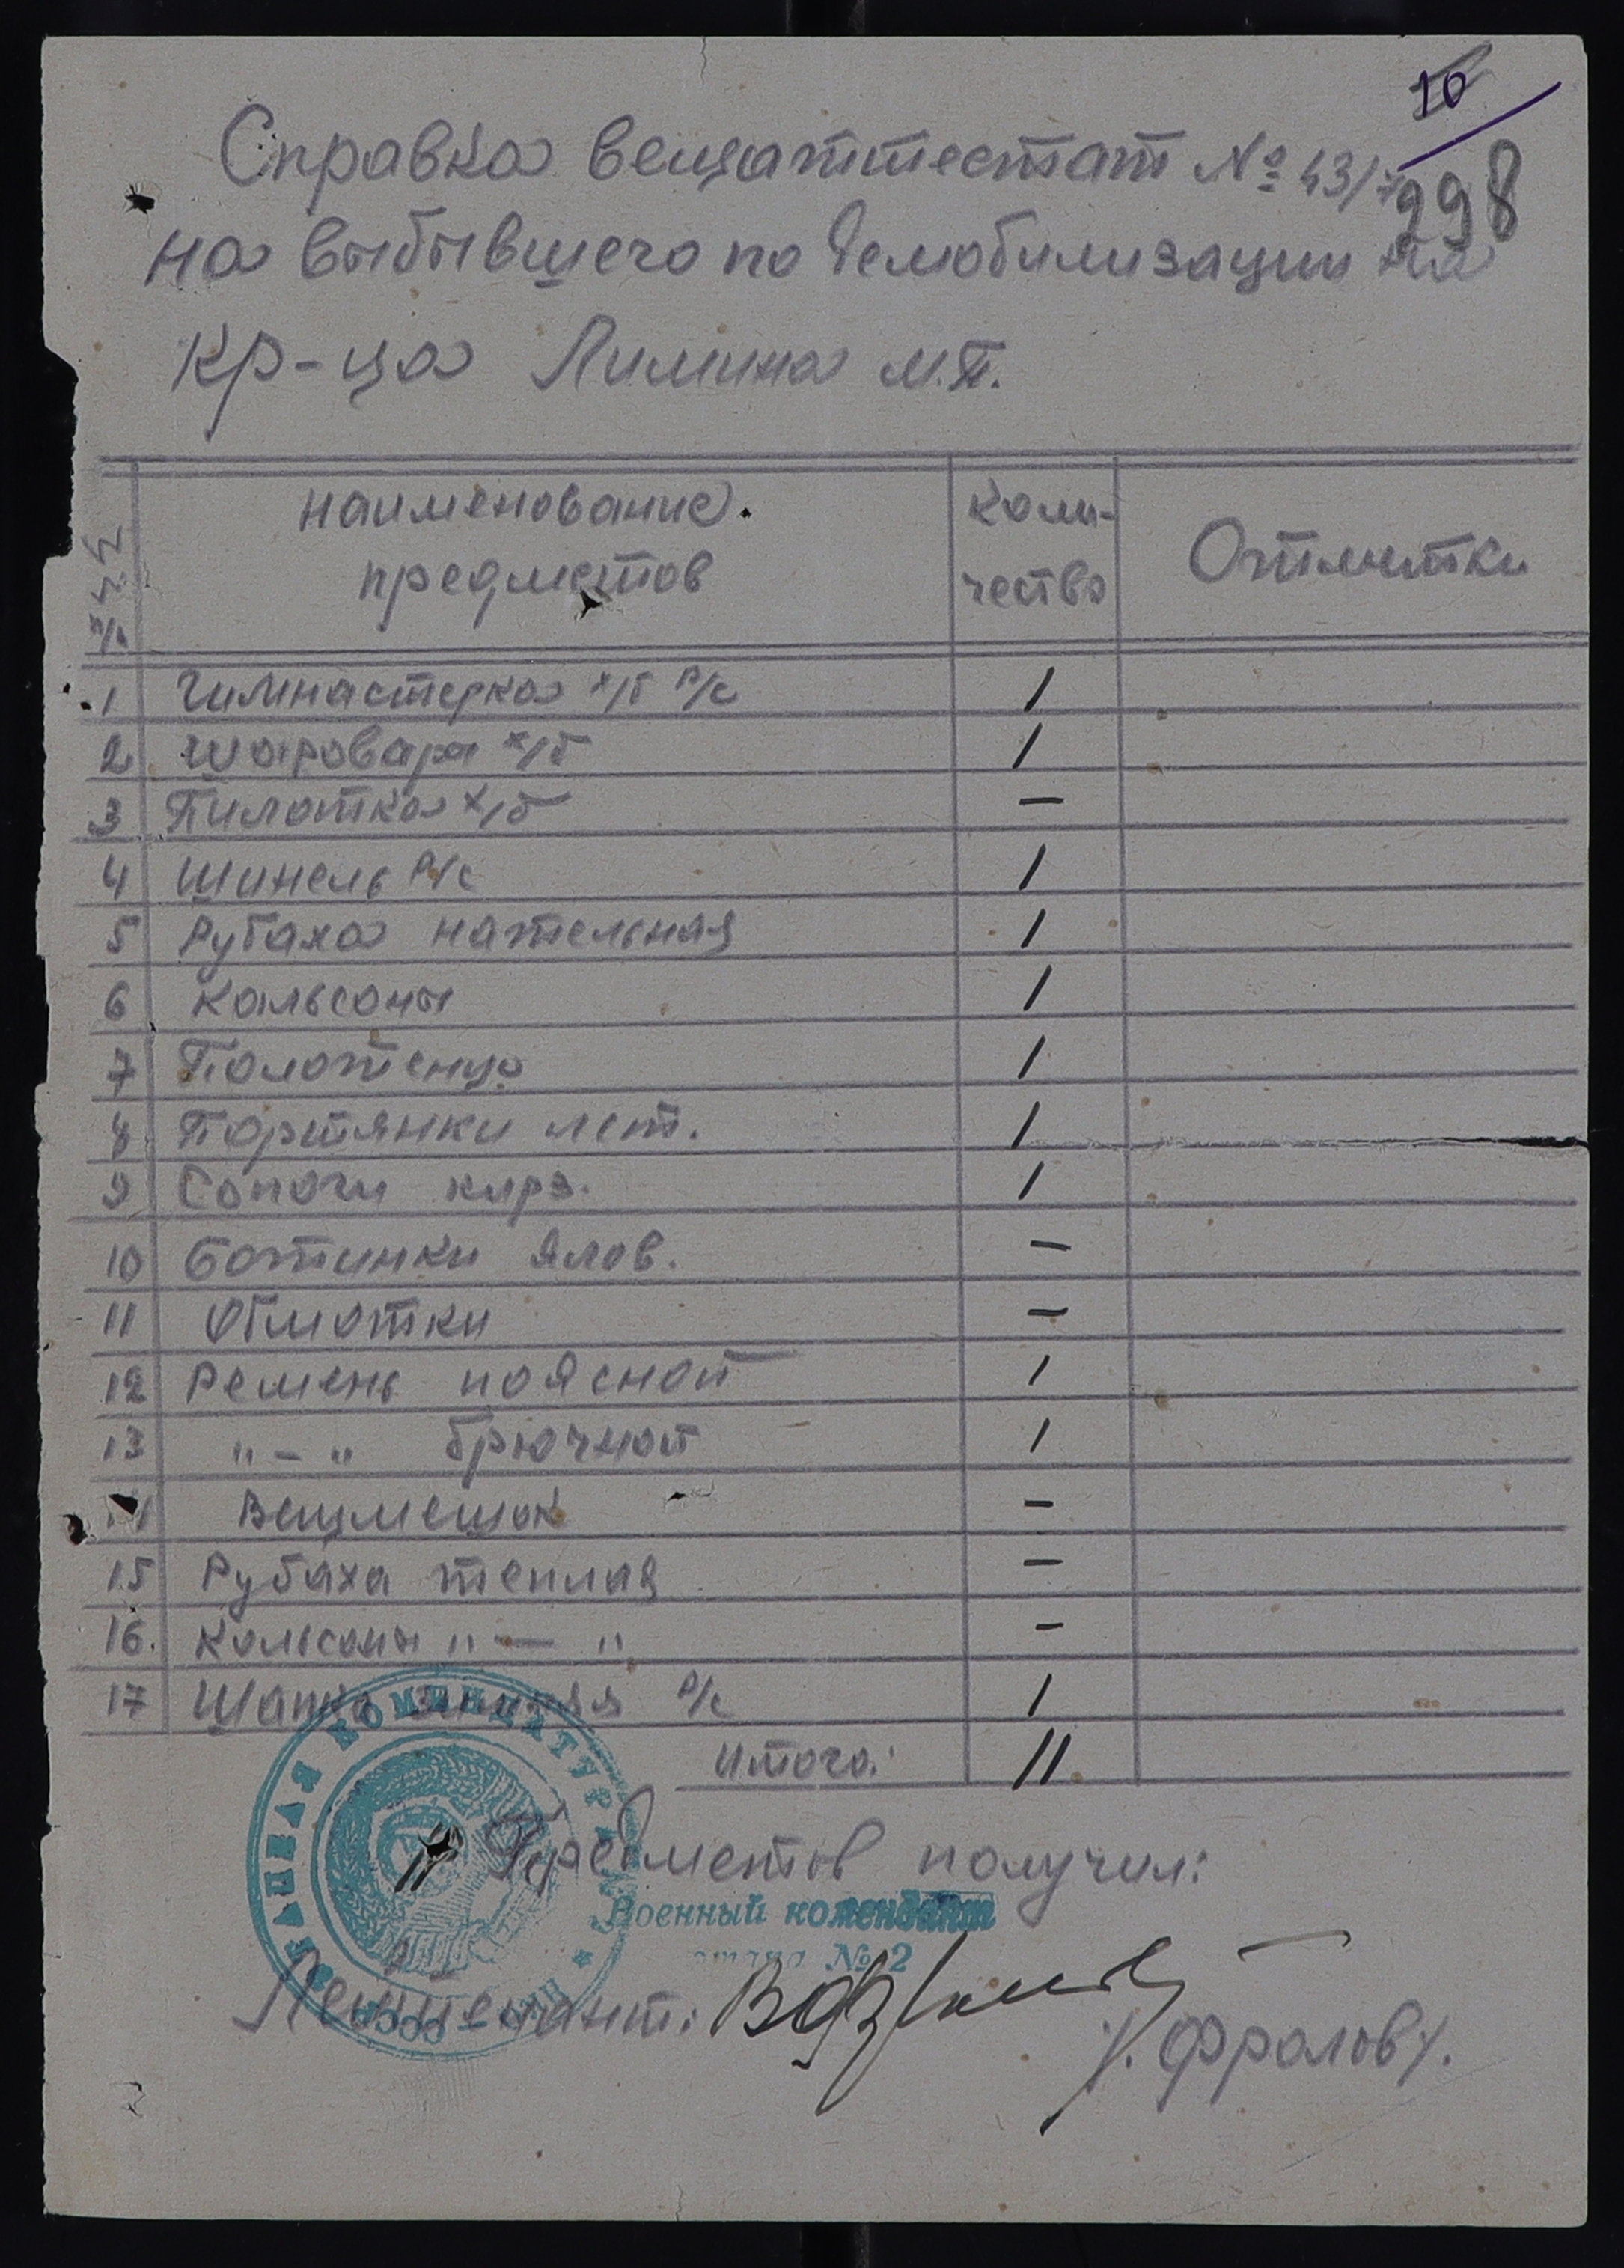 10
298
Справка вещаттестат № 43/7
на выбывшего по демобилизации на
кр-ца Лимина М.П.
№№ п/п наименование предметов коли-чество Отметки
1 Гимнастерка х/б р/с 1
2 Шаровары х/б 1
3 Пилотка х/б —
4 Шинель р/с 1
5 Рубаха нательная 1
6 Кальсоны 1
7 Полотенце 1
8 Портянки лет. 1
9 Сапоги кирз. 1
10 Ботинки ялов. —
11 Обмотки —
12 Ремень поясной 1
13 "-" брючной 1
14 Вещмешок —
15 Рубаха теплая —
16. Кальсоны " — " -
17 Шапка зимняя р/с 1
Итого: 11
11 Предметов получил:
Военный комендант
№ 2
Лейтенант:
/. Фролов/.
КОМЕНДАТУРА
НКО - СССР